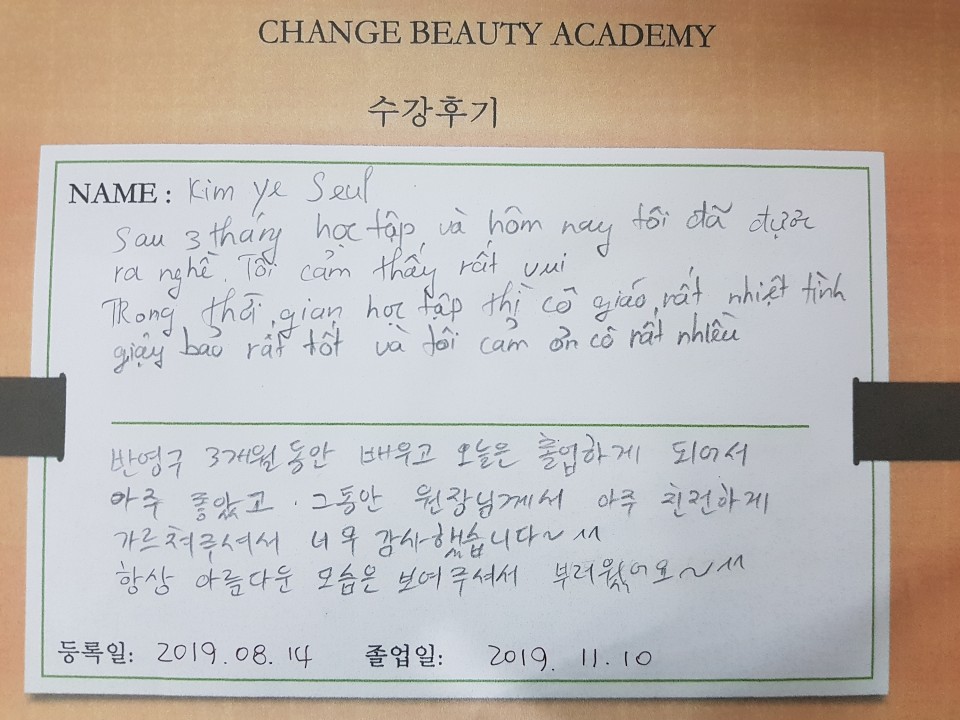 CHANGE BEAUTY ACADEMY
수강후기
NAME : Kim Ye Seul
Sau 3 tháng học tập và hôm nay tôi đã được
ra nghề. Tôi cảm thấy rất vui
TRong thời gian học tập thì cô giáo rất nhiệt tình
giậy bảo rất tốt và tôi cảm ơn cô rất nhiều
반영구 3개월 동안 배우고 오늘은 졸업하게 되어서
아주 좋았고. 그동안 원장님께서 아주 친전하게
가르쳐주셔서 너무 감사했습니다~ ^^
항상 아름다운 모습은 보여주셔서 부러웠어요~ ^^
등록일: 2019.08.14 졸업일: 2019. 11.10